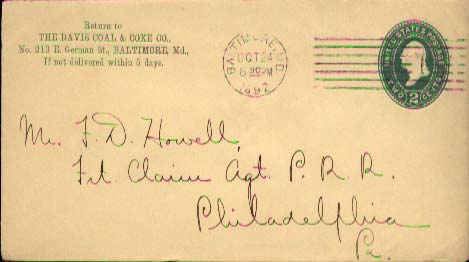 Return to
THE DAVIS COAL & COKE CO.,
No. 213 E. German St., BALTIMORE, Md.,
If not delivered within 5 days.
BALTIMORE, MD.
OCT 24
8 30 PM
1892
UNITED STATES POSTAGE
TWO 2 CENTS
Mr. F. D. Howell,
Frt. Claim Agt. P. R. R.
Philadelphia
Pa.